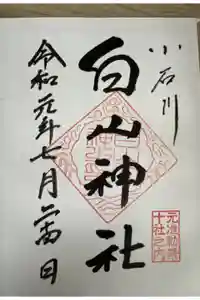 小石川
白山神社
令和元年七月二十四日
元准勅祭
十社之内